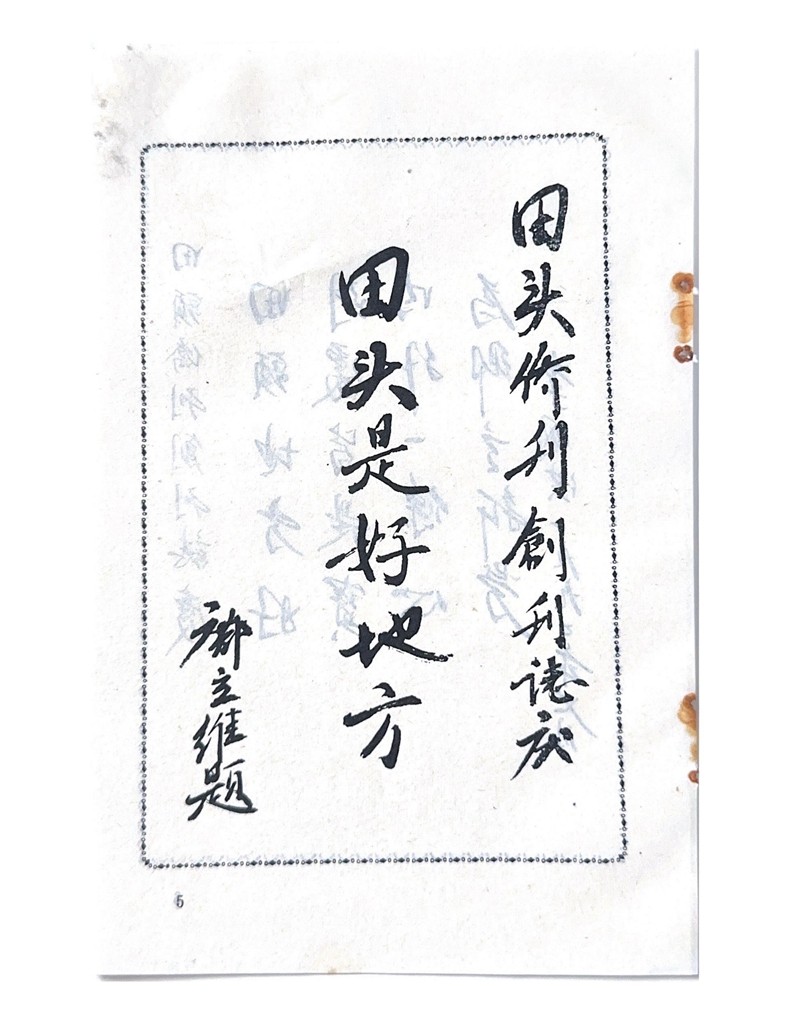 田头侨刊創刊誌庆
田头是好地方
立维题
5